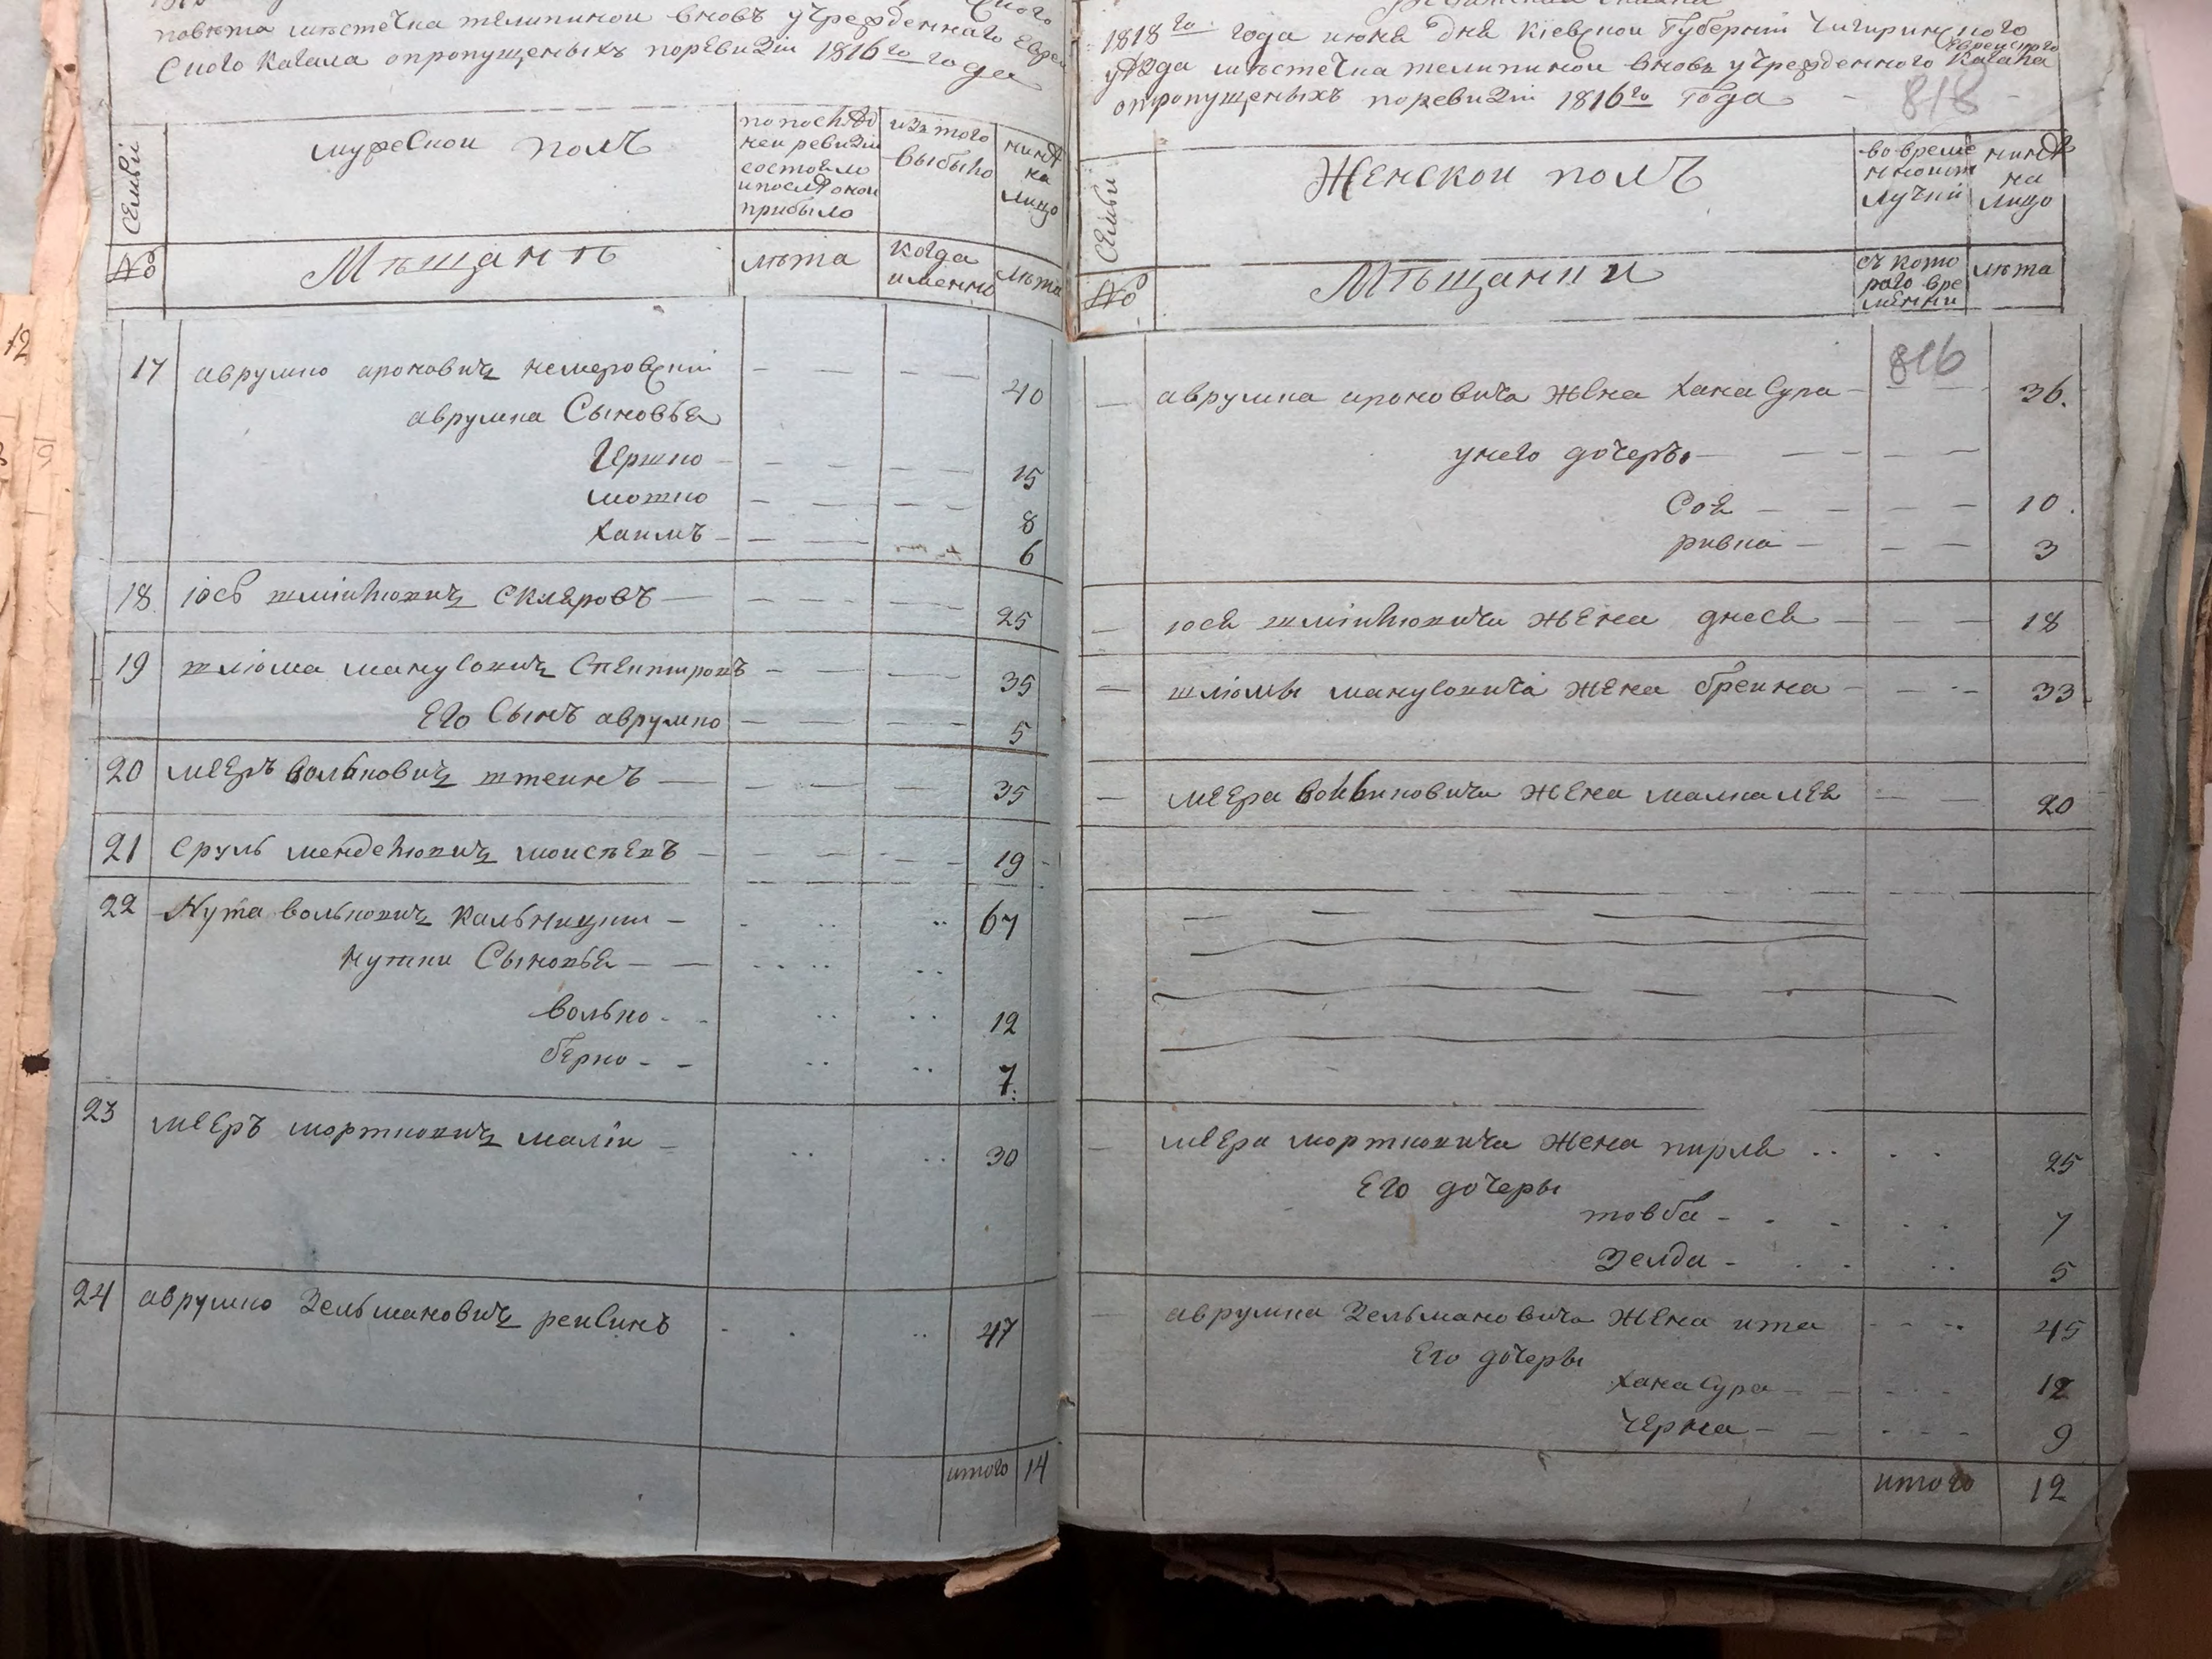 повѣта мѣстечка телепиной вновь учрежденнаго Еврей
ского Кагала опропущеныхъ поревизіи 1816го года
Семьи
мужескои полъ
по послѣд
ней ревизіи
состояло
и послѣ оной
прибыло
изъ того
выбыло
нынѣ
на
лицо
№
Мѣщанѣ
лѣта
когда
именно
лѣта
17 аврумко ароновичъ немеровскій 40
аврумка Сыновья
Гершко 15
мошко 8
хаимъ 6
18 іось шміилювичъ скляровъ 25
19 шліома манусовичъ спекторовъ 35
Его Сынъ аврумко 5
20 меЕръ вольковичъ штеинъ 35
21 Сруль менделювичъ моисѣевъ 19
22 Нута вольковичъ Кальницкій 67
нутки Сыновья
волько 12
берко 7
23 меЕръ мортковичъ малій 30
24 аврумко Зельмановичъ реисинъ 47
итого 14
1818го года июня дня Кіевской Губерніи Чигиринского
уѣзда мѣстечка телепиной вновь учрежденного Еврейского Кагала
опропущеныхъ поревизіи 1816го года
818
Семьи
Женскои полъ
во време
нной от
лучки
нынѣ
на
лицо
№
Мѣщанки
съ кото
рого вре
мянни
лѣта
816
аврумка ароновича жена хана Сура 36.
унего дочеръ
Соя 10.
ривка 3
іося шміилювича жена днеся 18
шліомы манусовича жена бреина 33
меЕра вольковича жена малка лея 20
меЕра мортковича жена пирля 25
Его дочеры
товба 7
Зелда 5
аврумка Зельмановича жена ита 45
Его дочеры
хана Сура 12
черна 9
итого 12
12